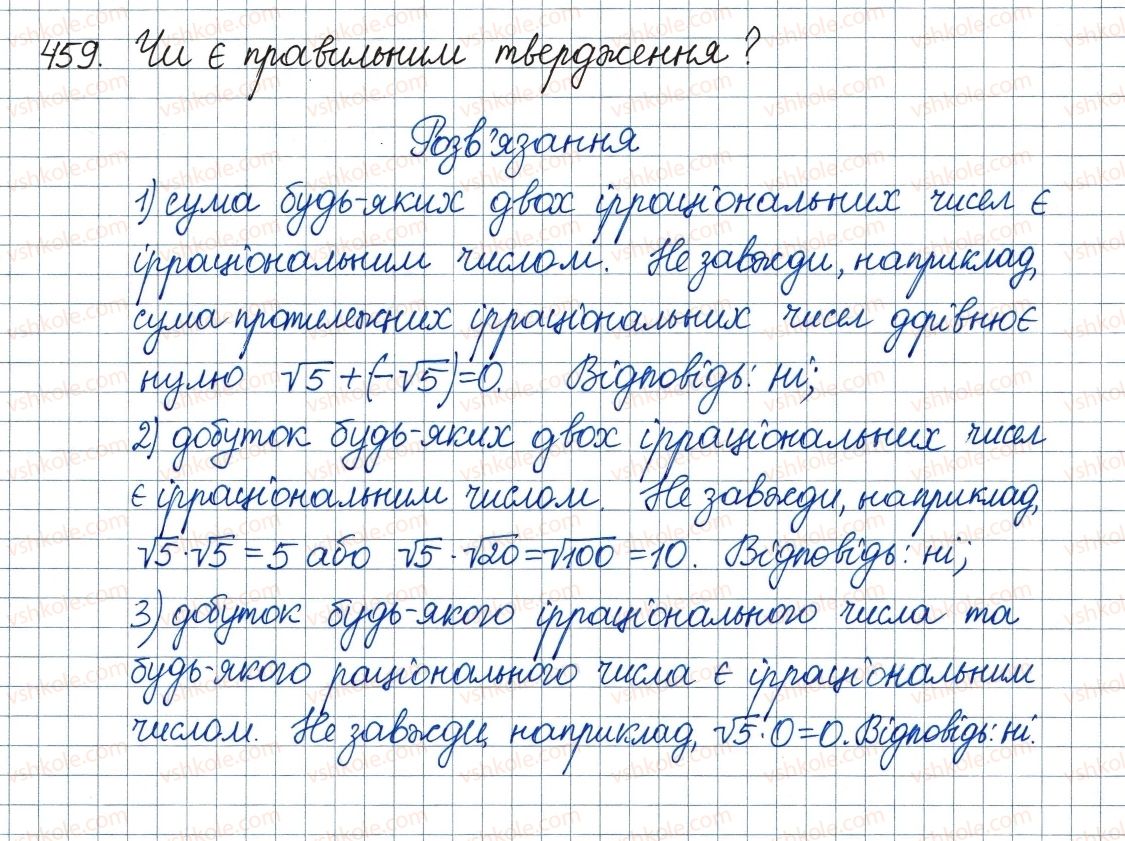 459. Чи є правильним твердження?
Розв'язання
1) сума будь-яких двох ірраціональних чисел є
ірраціональним числом. Не завжди, наприклад,
сума протилежних ірраціональних чисел дорівнює
нулю √5+(-√5)=0. Відповідь: ні;
2) добуток будь-яких двох ірраціональних чисел
є ірраціональним числом. Не завжди, наприклад,
√5·√5=5 або √5·√20=√100=10. Відповідь: ні;
3) добуток будь-якого ірраціонального числа та
будь-якого раціонального числа є ірраціональним
числом. Не завжди, наприклад, √5·0=0. Відповідь: ні.